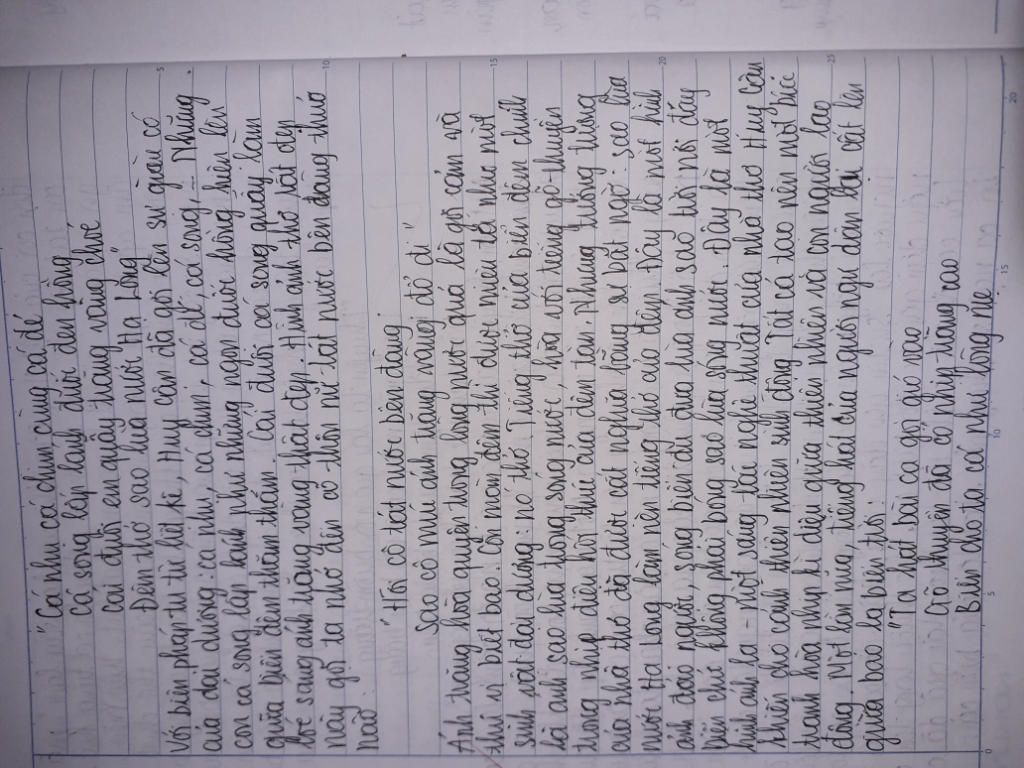 "Cá nhụ cá chim cùng cá đé
cá song lấp lánh đuốc đen hồng
Cái đuôi em quẫy trăng vàng chóe
Đêm thở sao lùa nước Hạ Long"
Với biện pháp tu từ liệt kê, Huy cận đã gợi lên sự giàu có
của đại dương: cá nhụ, cá chim, cá đé, cá song,... Những
con cá song lấp lánh như những ngọn đuốc hồng hiện lên
giữa biển đêm thăm thẳm. Cái đuôi cá song quẫy làm
bóc sáng ánh trăng vàng thật đẹp. Hình ảnh thơ rất đẹp
này gợi ta nhớ đến cô thôn nữ tát nước bên đàng thuở
nào
"Hỡi cô tát nước bên đàng
sao cô múc ánh trăng vàng đổ đi"
Ánh trăng hòa quyện trong lòng nước quả là gợi cảm và
thú vị biết bao. Còn màn đêm thì được miêu tả như một
sinh vật đại dương: nó thở. Tiếng thở của biển đêm chính
là ánh sao lùa trong sóng nước, hòa với tiếng gõ thuyền
trong nhịp điệu hối thúc của đêm tàn. Nhưng tưởng tượng
của nhà thơ đã được cắt nghĩa bằng sự bất ngờ: sao lùa
nước Hạ Long làm nên tiếng thở của đêm. Đây là một hình
ảnh đảo ngược, sóng biển đu đưa lùa ánh sao trời nơi đáy
biển chứ không phải bóng sao lùa sóng nước. Đây là một
hình ảnh lạ - một sáng tạo nghệ thuật của nhà thơ Huy Cận
khiến cho cảnh thiên nhiên sinh động. Tất cả tạo nên một bức
tranh hòa nhịp kì diệu giữa thiên nhiên và con người lao
động. Một lần nữa, tiếng hát của người ngư dân lại cất lên
giữa bao la biển trời:
"Ta hát bài ca gọi gió vào
Gõ thuyền đã có nhịp trăng cao
Biển cho ta cá như lòng mẹ
5
10
15
20
25
0
5
10
15
20